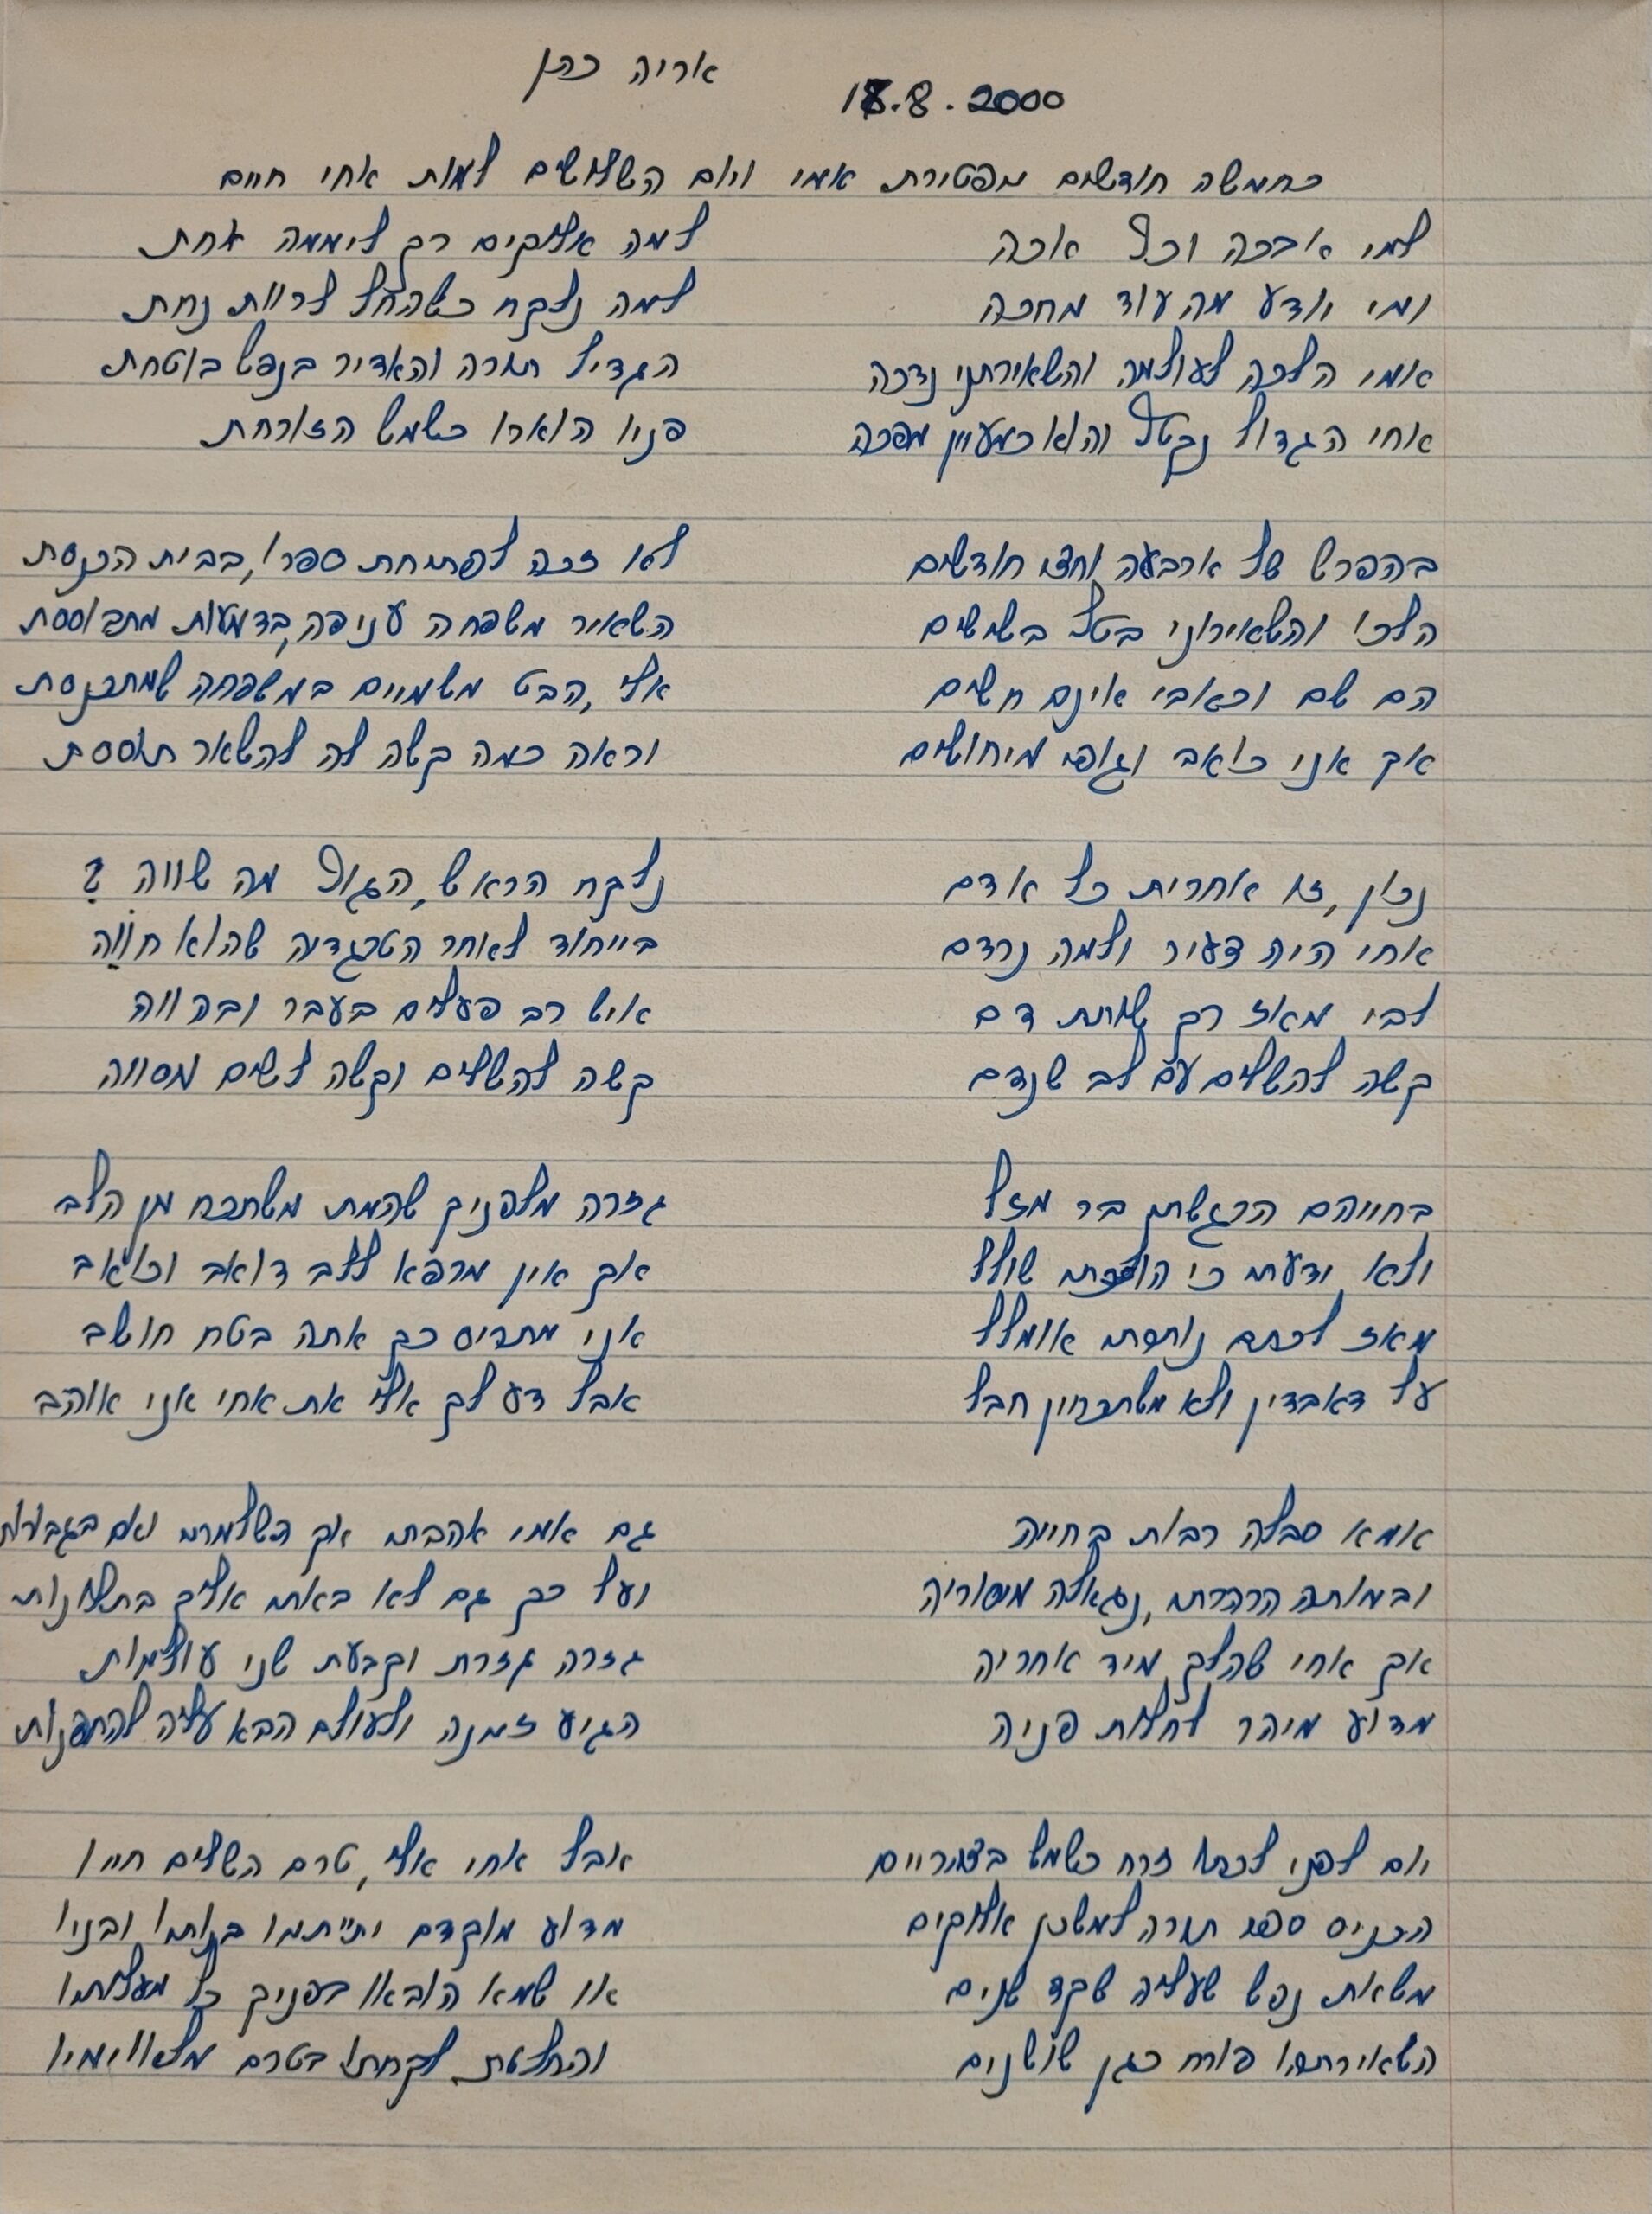 אריה כהן
18.8.2000
כחמשה חודשים מפטירת אמי ויום השלושים למות אחי חיים
למי אבכה וכל אכה
ומי יודע מה עוד מחכה
אמי הלכה לעולמה והשאירתני נדכה
אחי הגדול נקטל והוא כמעיין מפכה
בהפרש של ארבעה וחצי חודשים
הלכו והשאירוני בטל בשישים
הם שם וכאבי אינם חשים
אך אני כואב וגופי מיחושים
נכון, זו אחרית כל אדם
אחי היה צעיר ולמה נרדם
לבי מאז רק שותת דם
קשה להשלים עם לב שנדם
בחייהם הרגשתי בר מזל
ולא ידעתי כי הולכתי שולל
מאז לכתם נותרתי אומלל
על דאבדין ולא משתכחין חבל
אמא סבלה רבות בחייה
ובמותה הרהרתי, נגאלה מיסוריה
אך אחי שהלך מיד אחריה
מדוע מיהר לחלות פניה
יום לפני לכתו זרח כשמש בצהריים
הכניס ספר תורה למשכן אלוקים
משאת נפש שעליה שקד שנים
השאירתהו פורח כגן שושנים
למה אלוקים רק ליממה אחת
למה נלקח כשהחל לרוות נחת
הגדיל תורה והאדיר בנפש בוטחת
פניו הוארו כשמש הזורחת
לא זכה לפתיחת ספרו, בבית הכנסת
השאיר משפחה עניפה, בדמעות מתבוססת
אלי, הבט משמיים במשפחה שמתכנסת
וראה כמה קשה לה להשאר תוססת
נלקח הראש, הגוף מה שווה ?
בייחוד לאחר הטרגדיה שהוא חווה
איש רב פעלים בעבר ובהווה
קשה להשלים וקשה לשים מסווה
גזרה מלפניך שהמת משתכח מן הלב
אך אין מרפא ללב דואב וכואב
אני מתריס כך אתה בטח חושב
אבל דע לך אלי את אחי אני אוהב
גם אמי אהבתי אך השלמתי ואם בגבורות
ועל כך גם לא באתי אליך בתלונות
גזרה גזרת וקבעת שני עולמות
הגיע זמנה ולעולם הבא עליה להתפנות
אבל אחי אלי, טרם השלים חייו
מדוע מוקדם יתייתמו בנותיו ובניו
או שמא הובאו בפניך כל מעלותיו
והחלטת לקחתו בטרם מלאו ימיו